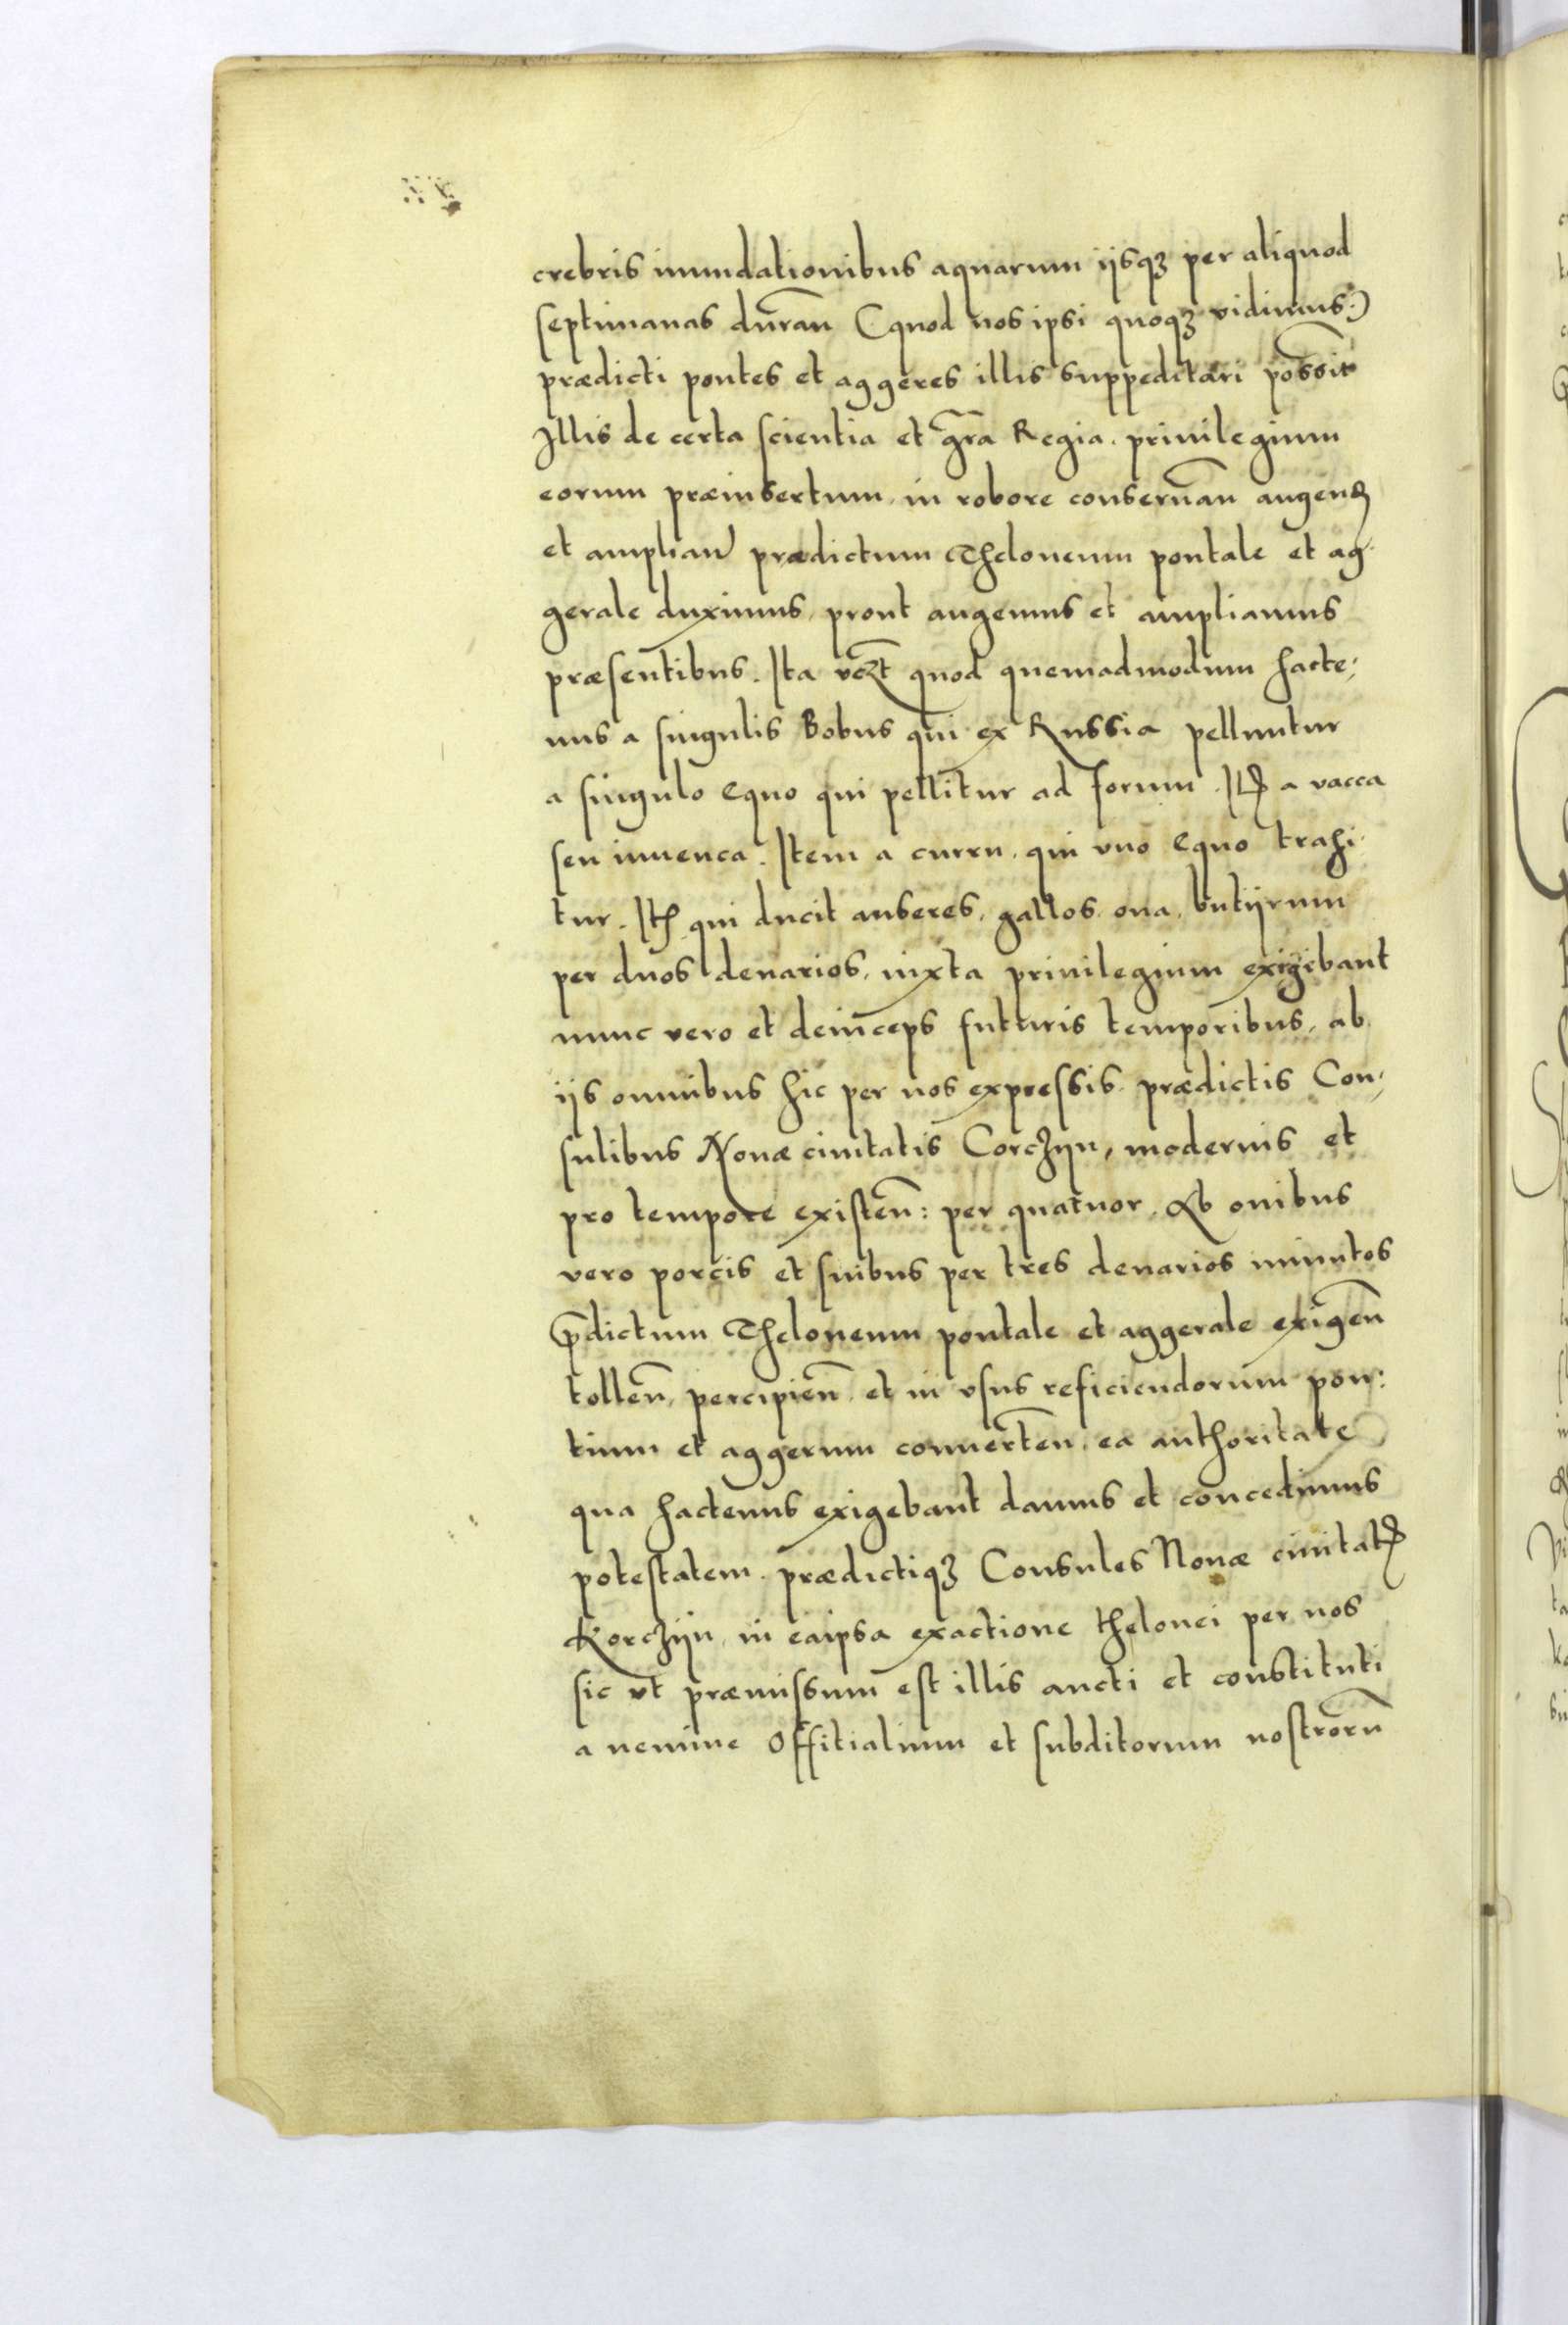 crebris inundationibus aquarum ijsqꝫ per aliquod
septimanas durañ (quod nos ipsi quoqꝫ vidimus:)
prædicti pontes et aggeres illis suppeditari possit
Illis de certa scientia et gr̃a Regia. priuilegium
eorum præinsertum, in robore conseruañ augenđ
et ampliañ prædictum Theloneum pontale et ag:
gerale duximus, prout augemus et ampliamus
præsentibus. Ita vcꝫt quod quemadmodum hacte:
nus a singulis Bobus qui ex Russia pelluntur
a singulo Equo qui pellitur ad forum. Itꝫ a vacca
seu iuuenca. Item a curru, qui vno Equo trahi:
tur. Itꝫ qui ducit anseres, gallos, oua, butÿrum
per duos denarios, iuxta priuilegium exigebant
nunc vero et deinceps futturis temporibus, ab
ijs omnibus hic per nos expressis prædictis Con:
sulibus Nouæ ciuitatis Corczÿn, modernis et
pro tempore existeñ: per quatuor. Ab ouibus
vero porcis et suibus per tres denarios minutos
p̄dictum Theloneum pontale et aggerale exigeñ
tolleñ, percipieñ, et in vsus reficiendorum pon:
tium et aggerum conuerteñ, ea authoritate
qua hactenus exigebant damus et concedimus
potestatem. prædictiqꝫ Consules Nouæ ciuitatꝭ
Korczÿn, in eaipsa exactione thelonei per nos
sic vt præmissum est illis aucti et constituti
a nemine Offitialium et subditorum nostrorũ